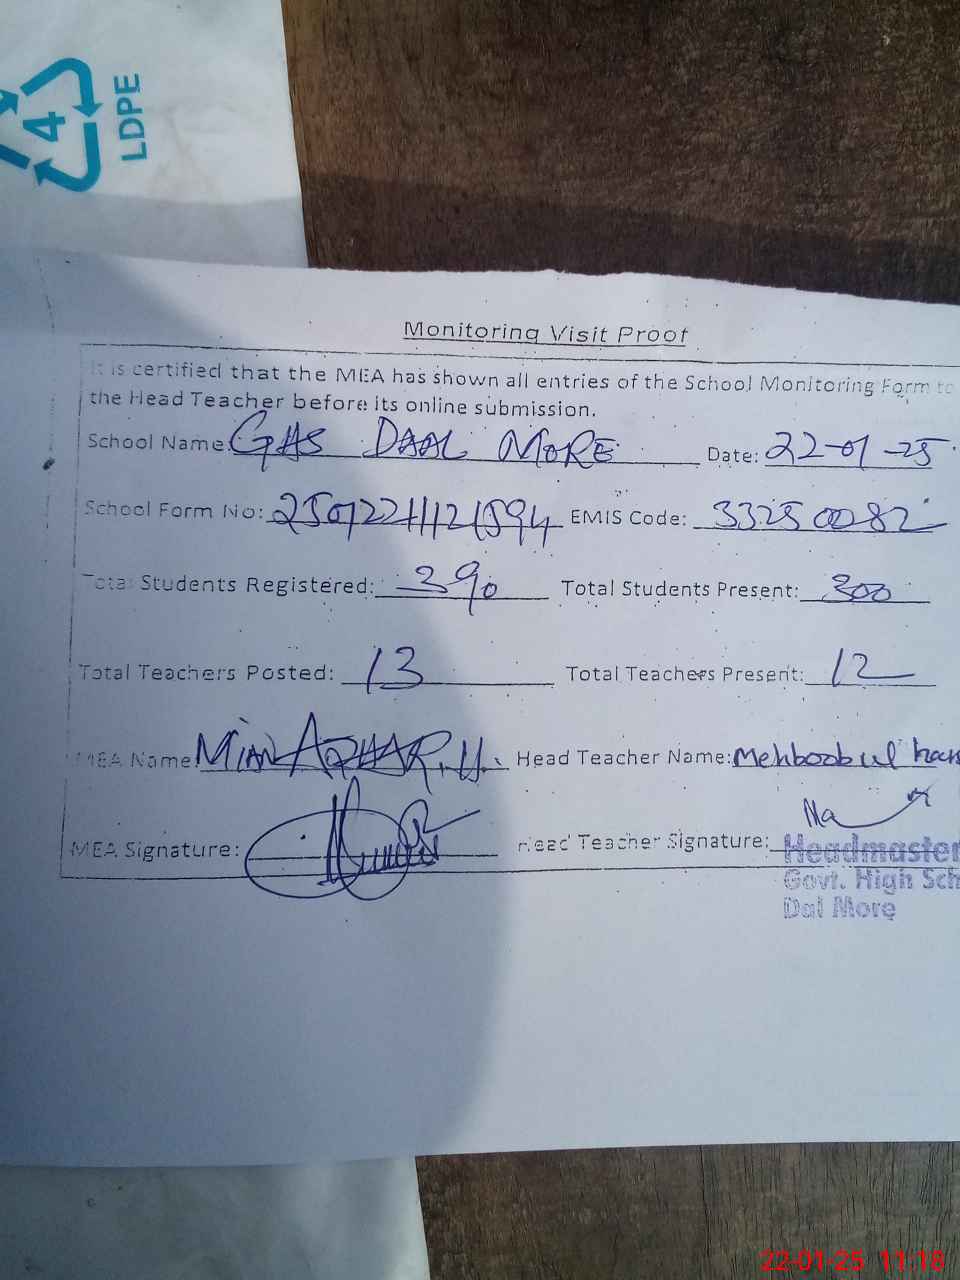 4
LDPE
Monitoring Visit Proof
It is certified that the MEA has shown all entries of the School Monitoring Form to
the Head Teacher before its online submission.
School Name: GHS DAAL MORE Date: 22-01-25
School Form No: EMIS Code: 33250082
Total Students Registered: 390 Total Students Present: 300
Total Teachers Posted: 13 Total Teachers Present: 12
MEA Name: MIAN AZHAR. H. Head Teacher Name: Mehboob ul
MEA Signature: Head Teacher Signature:
Headmaster
Govt. High Sch
Dal More
22-01-25 11:18